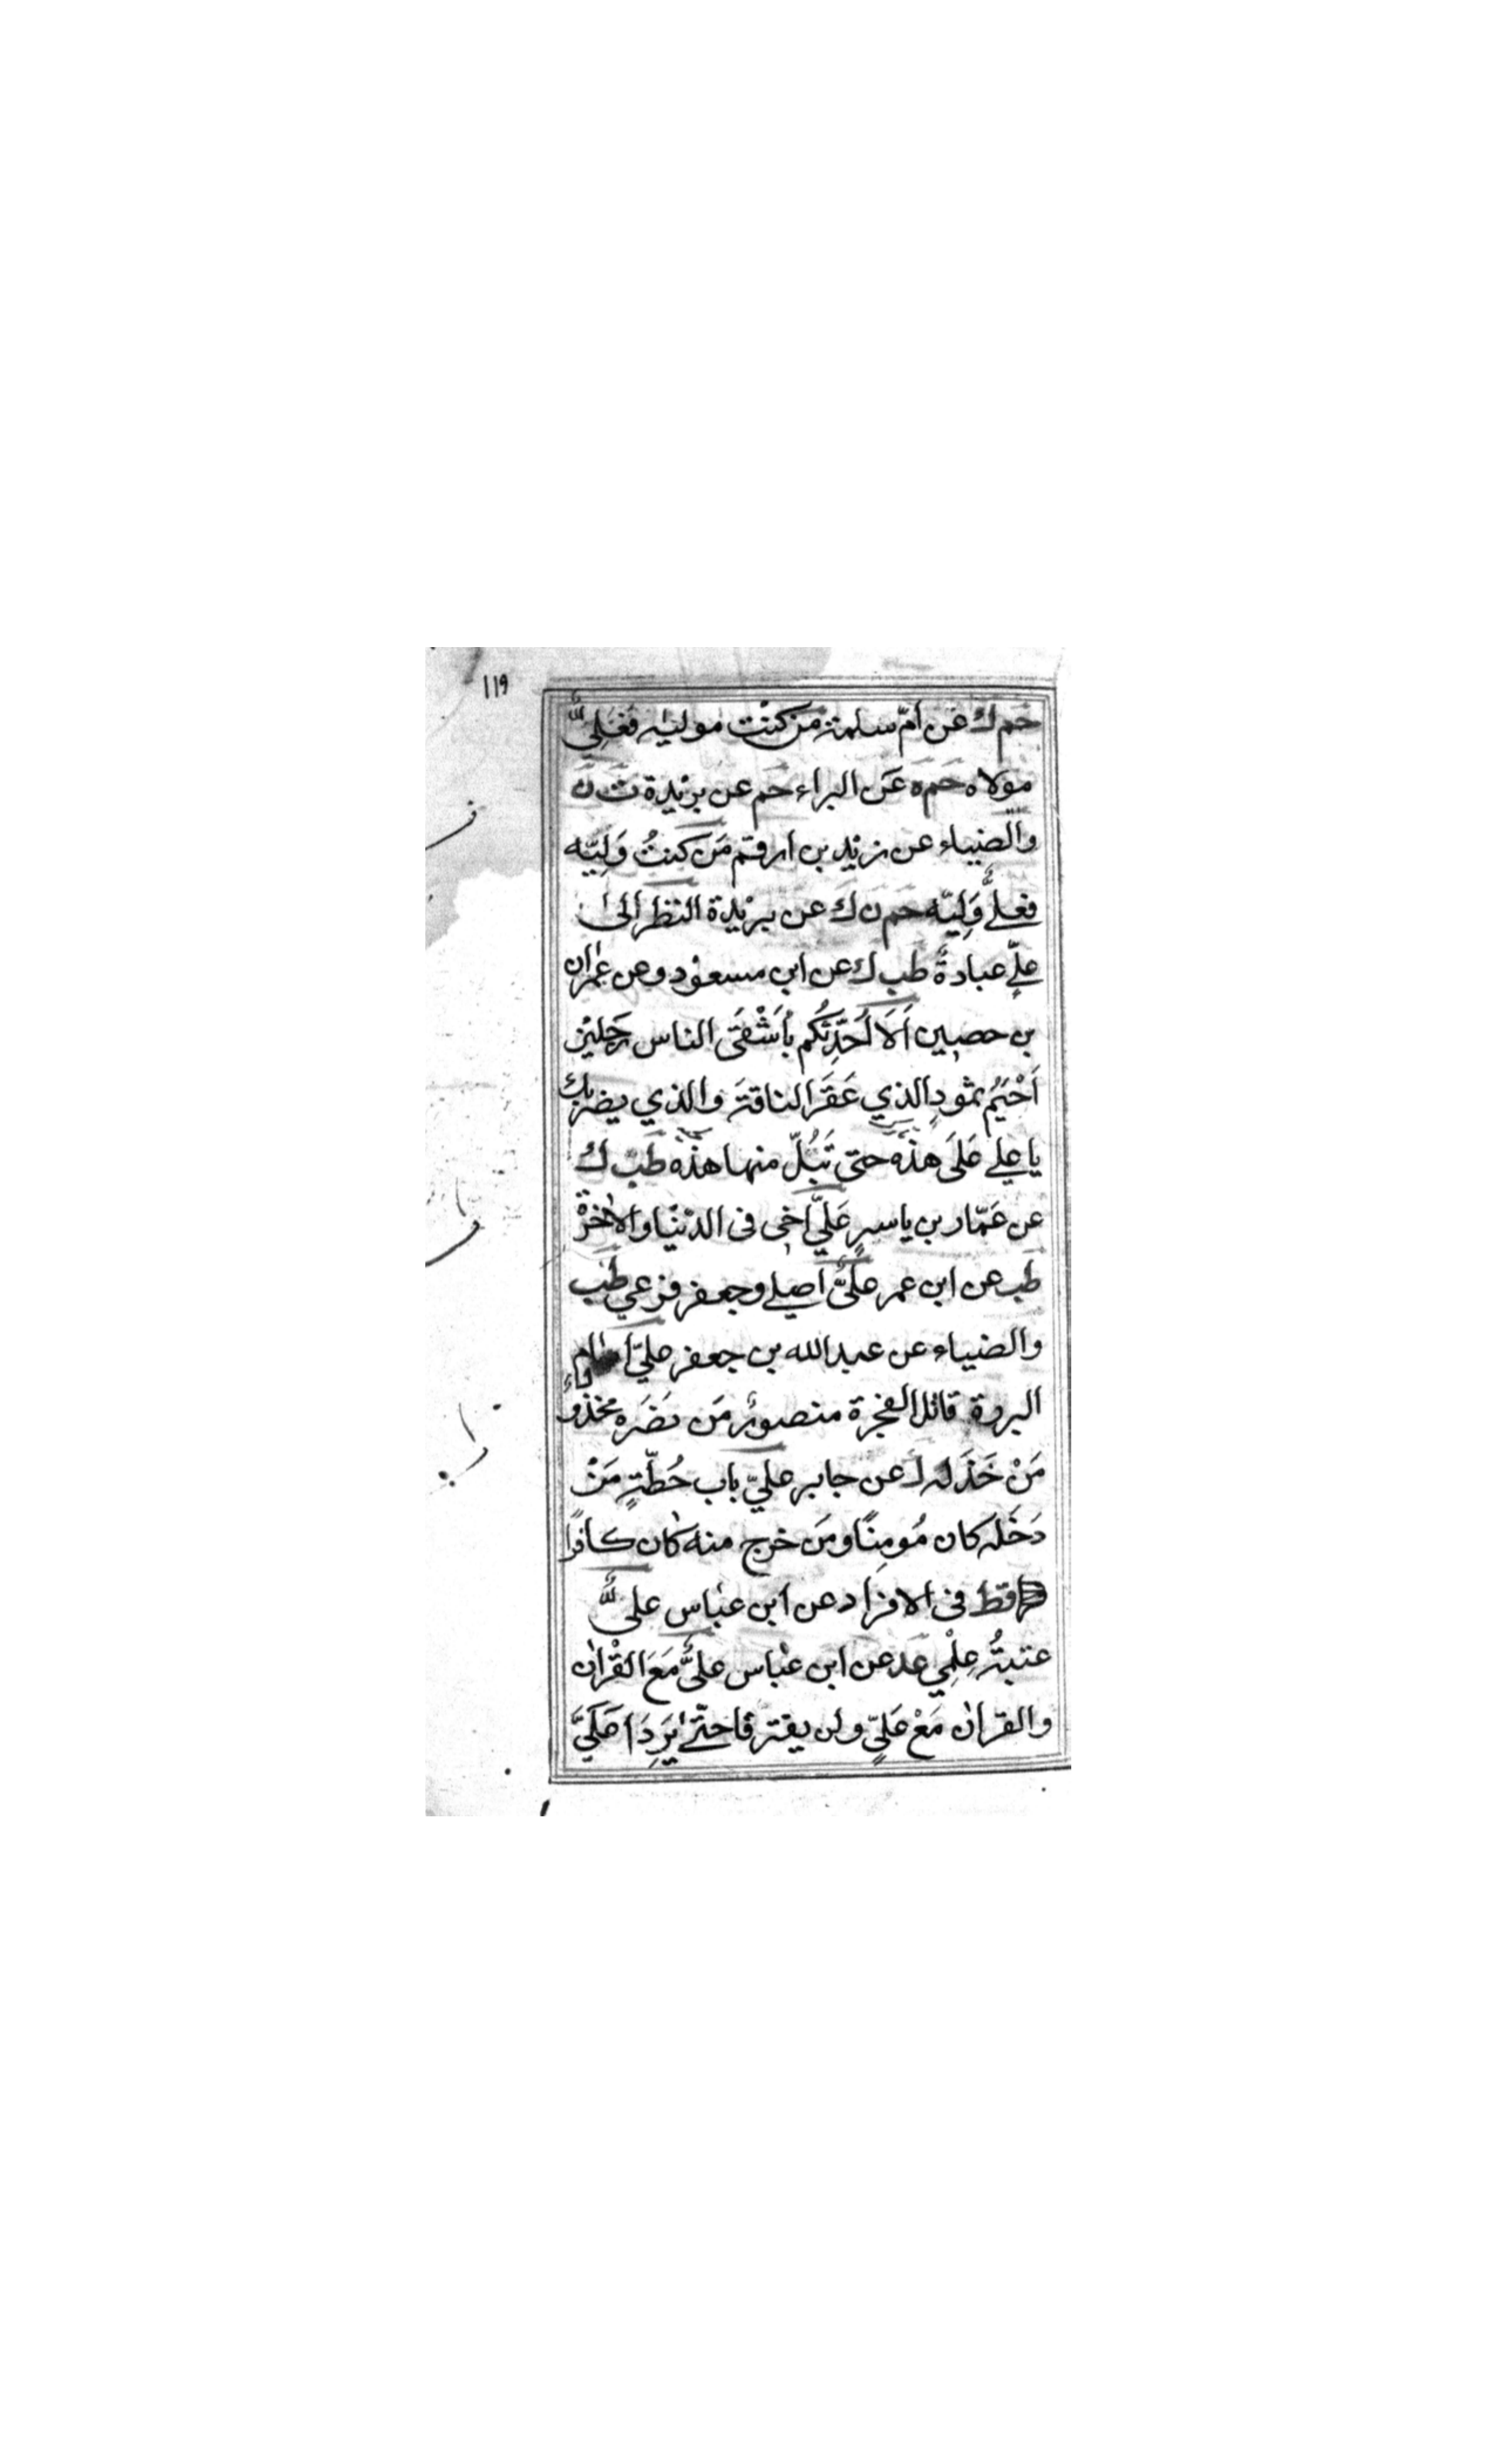 ١١٩
حم ك عن أمّ سلمة من كنت موليٰه فعليٌّ
مولاه حم ه عن البراء حم عن بريدة ت ن
والضياء عن زيد بن ارقم مَن كنتُ وَلِيّه
فعليٌّ وَلِيّه حم ن ك عن بريدة النظر الیٰ
عليٍّ عبادةٌ طب ك عن ابن مسعود وعن عمران
بن حصين اَلَا اُحَدِّثُكم بأَشْقَى الناس رَجلين
اُحَيْمُ ثمودٍ الذي عَقَر الناقةَ والذي يضربك
يا علي عَلَى هذه حتى تَبُلّ منها هذه طب ك
عن عَمّار بن ياسرٍ عَليّ اخى فى الدنيا والاٰخرة
طب عن ابن عمر عليٌّ اصلي وجعفر فرعي طب
والضياء عن عبد الله بن جعفر عليّ امام
البررة قاتل الفجرة منصورٌ مَن نصَره مخذولٌ
مَنْ خَذَله ك عن جابر عليّ باب حُطّةٍ مَنْ
دَخَله كان مُومِنًا ومَن خرج منه كان كافرًا
قط فى الافراد عن ابن عباس عليٌّ
عتبةُ عِلْمِي عد عن ابن عباس عليٌّ مَعَ القرْاٰن
والقراٰن مَعْ عَليٍّ ولن يفترقا حتّٰے يَرِدَا عَلَيَّ